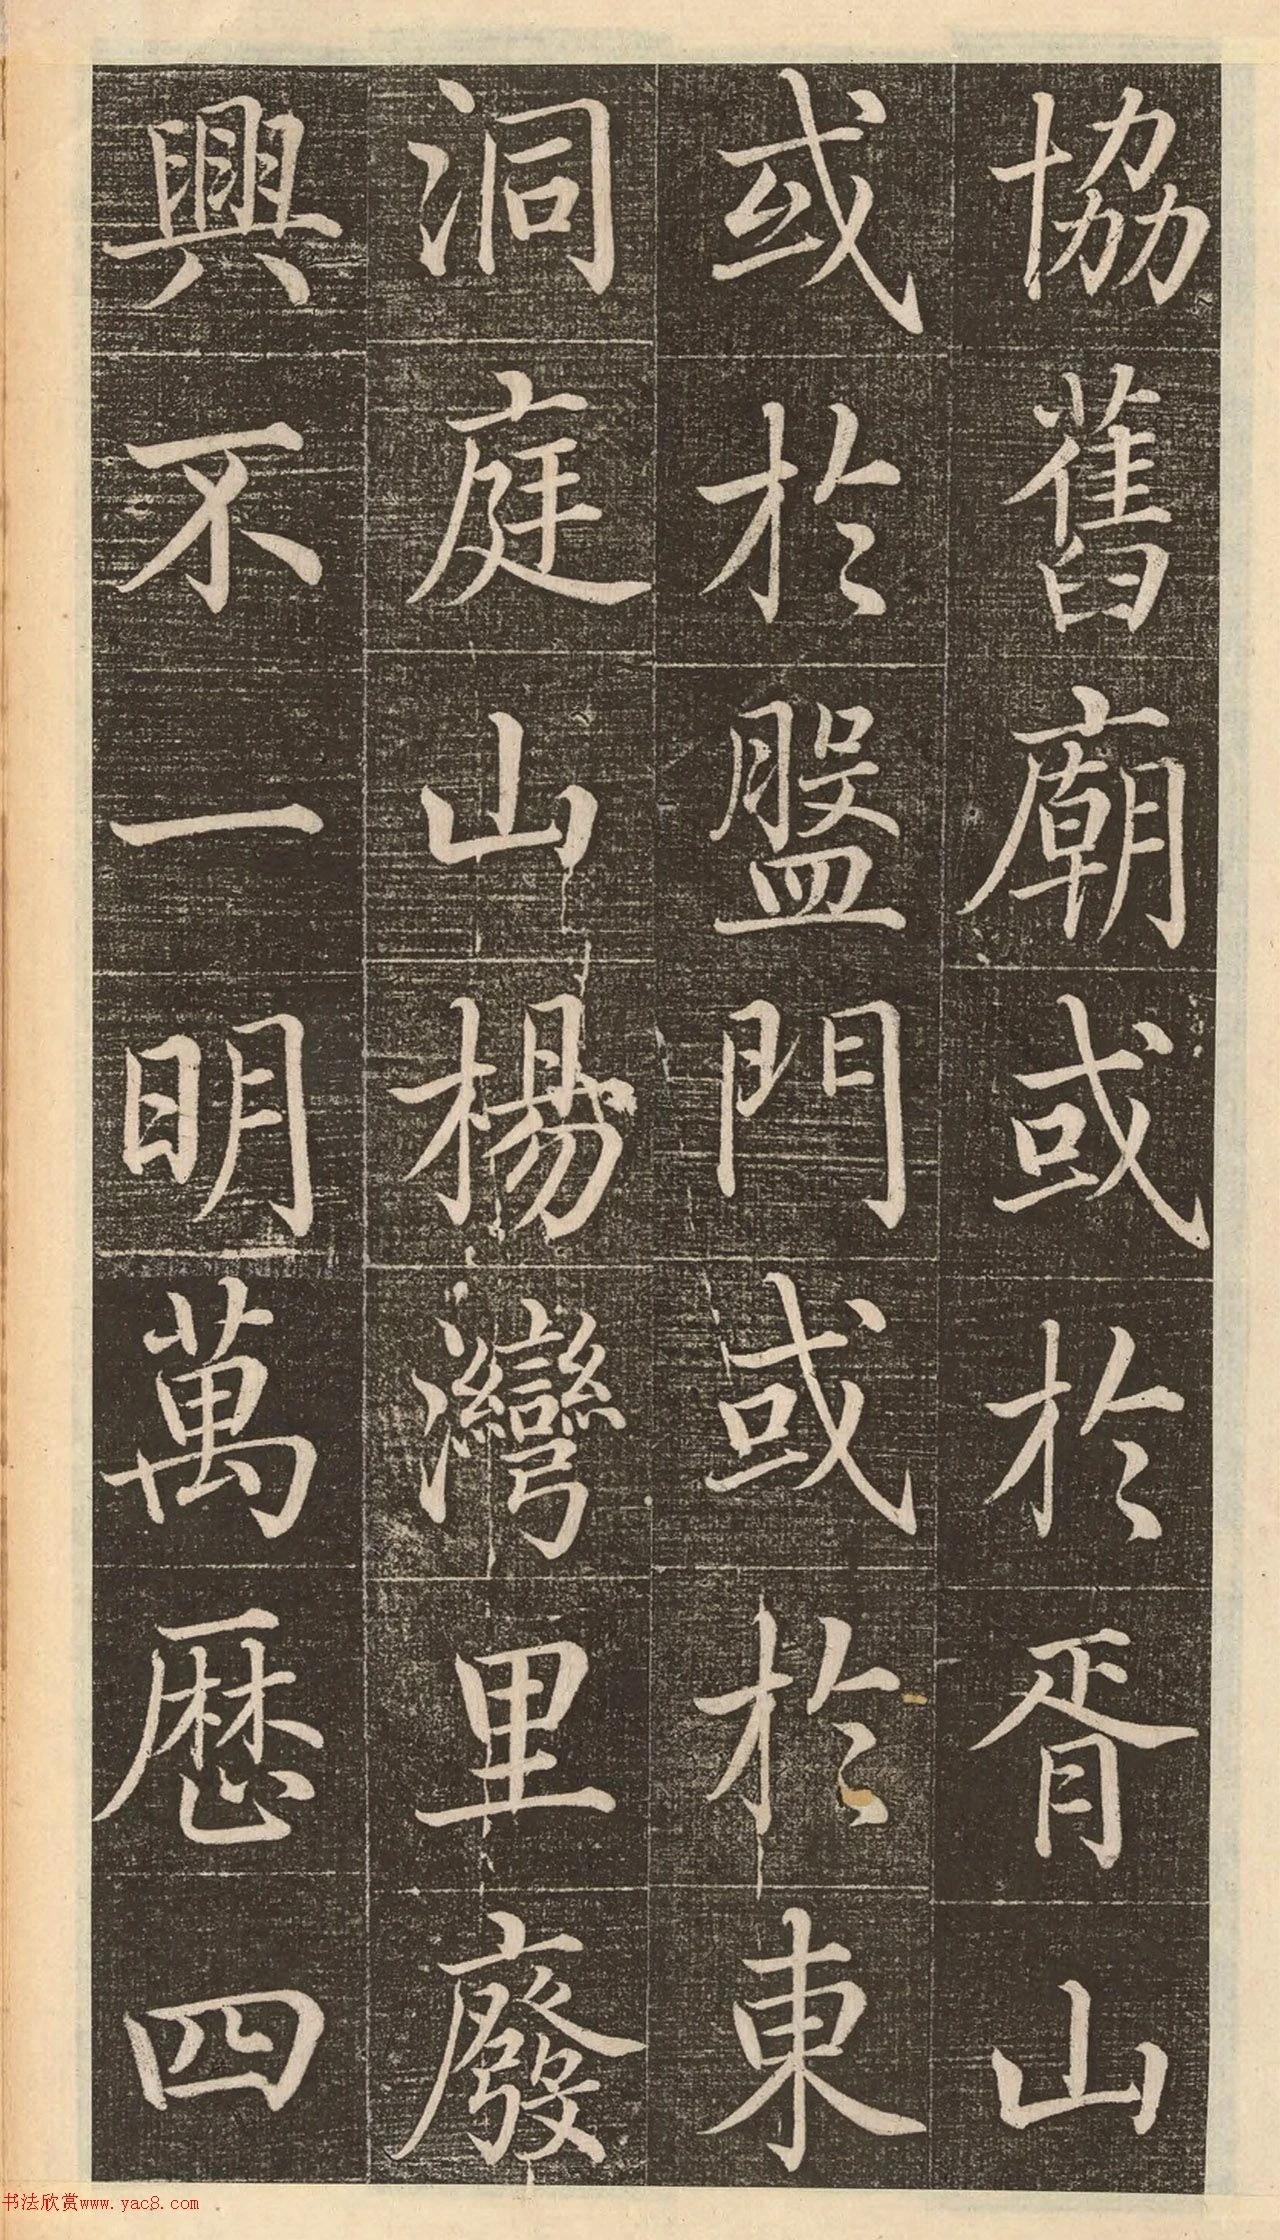 協舊廟或於胥山
或於盤門或於東
洞庭山楊灣里廢
興不一明萬曆四
书法欣赏www.yac8.com